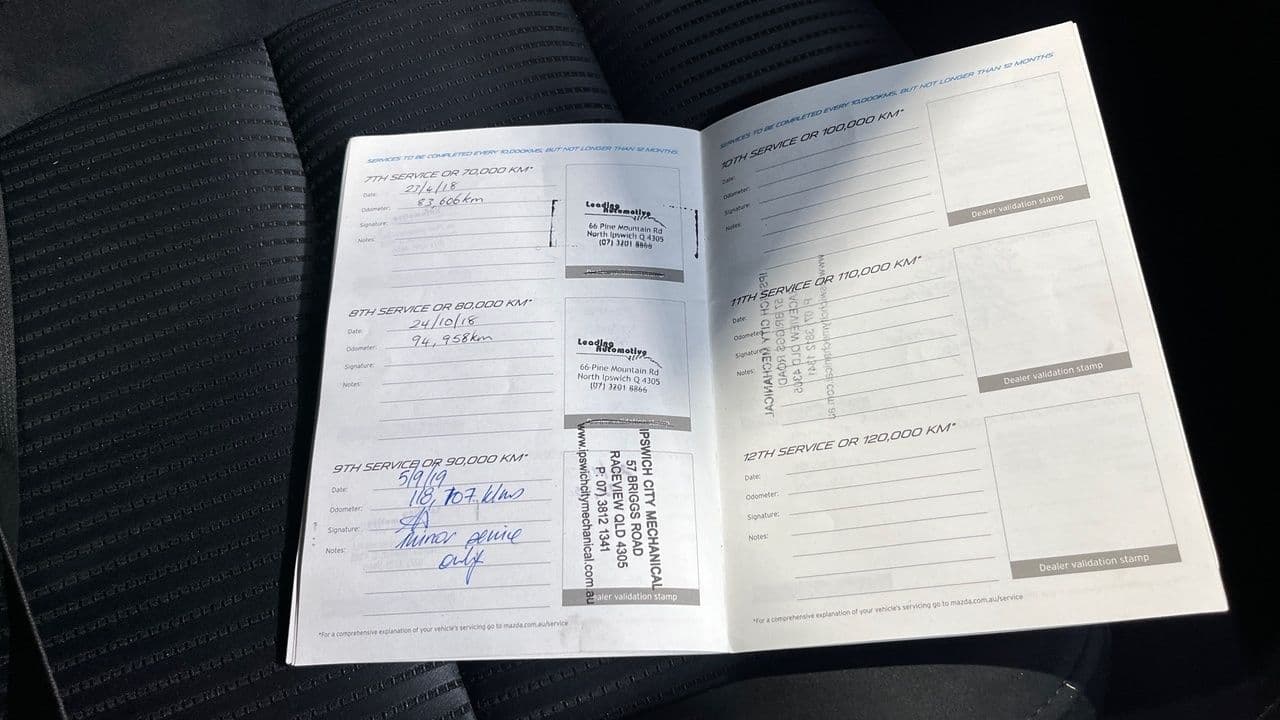 SERVICES TO BE COMPLETED EVERY 10,000KMS, BUT NOT LONGER THAN 12 MONTHS.
7TH SERVICE OR 70,000 KM*
Date: 27/4/18
Odometer: 83,606km
Signature:
Notes:
Leading
Automotive
66 Pine Mountain Rd
North Ipswich Q 4305
(07) 3201 8866
8TH SERVICE OR 80,000 KM*
Date: 24/10/18
Odometer: 94,958km
Signature:
Notes:
Leading
Automotive
66 Pine Mountain Rd
North Ipswich Q 4305
(07) 3201 8866
9TH SERVICE OR 90,000 KM*
Date: 5/9/19
Odometer: 118,707 klms
Signature:
Notes: minor service
only
IPSWICH CITY MECHANICAL
57 BRIGGS ROAD
RACEVIEW QLD 4305
P: 07) 3812 1341
www.ipswichcitymechanical.com.au
aler validation stamp
*For a comprehensive explanation of your vehicle's servicing go to mazda.com.au/service
SERVICES TO BE COMPLETED EVERY 10,000KMS, BUT NOT LONGER THAN 12 MONTHS
10TH SERVICE OR 100,000 KM*
Date:
Odometer:
Signature:
Notes:
Dealer validation stamp
11TH SERVICE OR 110,000 KM*
Date:
Odometer:
Signature:
Notes:
IPSWICH CITY MECHANICAL
57 BRIGGS ROAD
RACEVIEW QLD 4305
P: 07) 3812 1341
www.ipswichcitymechanical.com.au
Dealer validation stamp
12TH SERVICE OR 120,000 KM*
Date:
Odometer:
Signature:
Notes:
Dealer validation stamp
*For a comprehensive explanation of your vehicle's servicing go to mazda.com.au/service